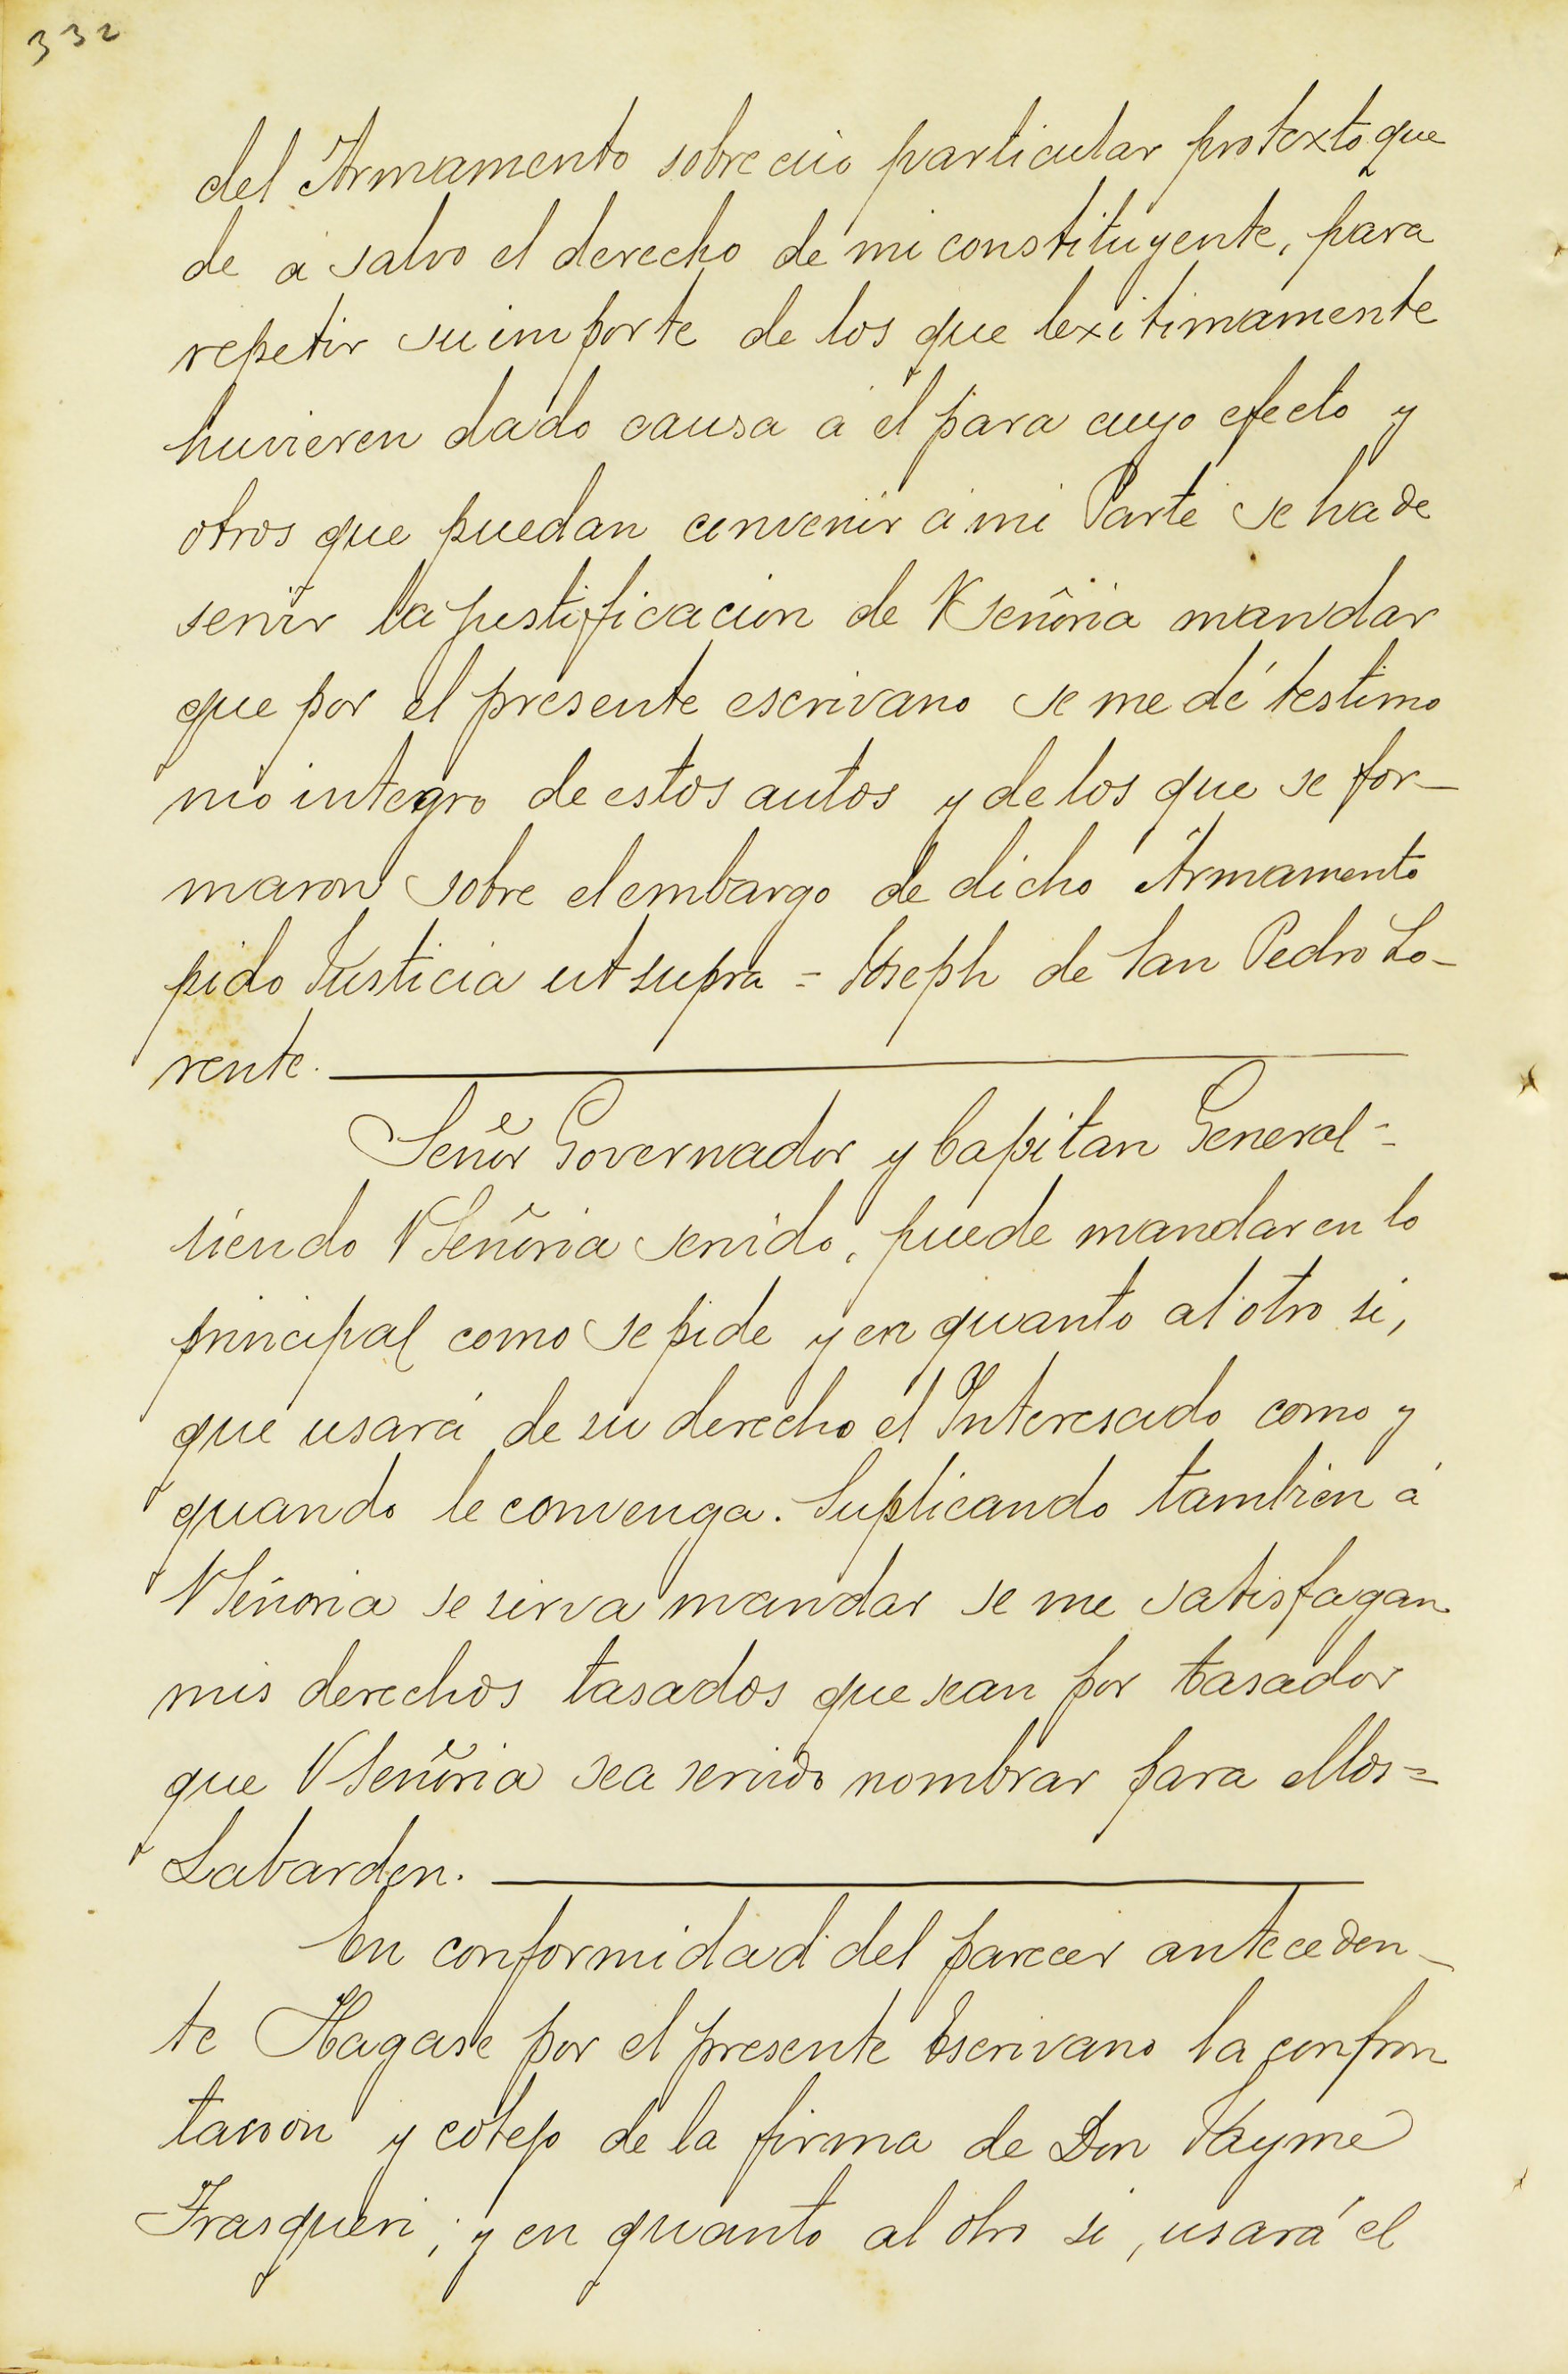 332
del Armamento sobre cuio particular protexto que
de á salvo el derecho de mi constituyente, para
repetir su importe de los que lexitimamente
huvieren dado causa á el para cuyo efecto y
otros que puedan convenir á mi Parte se ha de
servir la justificacion de VSeñoria mandar
que por el presente escrivano se me dé testimo
nio integro de estos autos y de los que se for-
maron sobre el embargo de dicho Armamento
pido Justicia ut supra = Joseph de San Pedro Lo-
rente.
Señor Governador y Capitan General =
siendo VSeñoria servido, puede mandar en lo
principal como se pide y en quanto al otro si,
que usará de su derecho el Interesado como y
quando le convenga. Suplicando tambien á
VSeñoria se sirva mandar se me satisfagan
mis derechos tasados que sean por tasador
que VSeñoria sea servido nombrar para ellos =
Labarden.
En conformidad del parecer anteceden-
te Hagase por el presente Escrivano la confron
tacion y cotejo de la firma de Don Jayme
Frasqueri; y en quanto al otro si, usará el